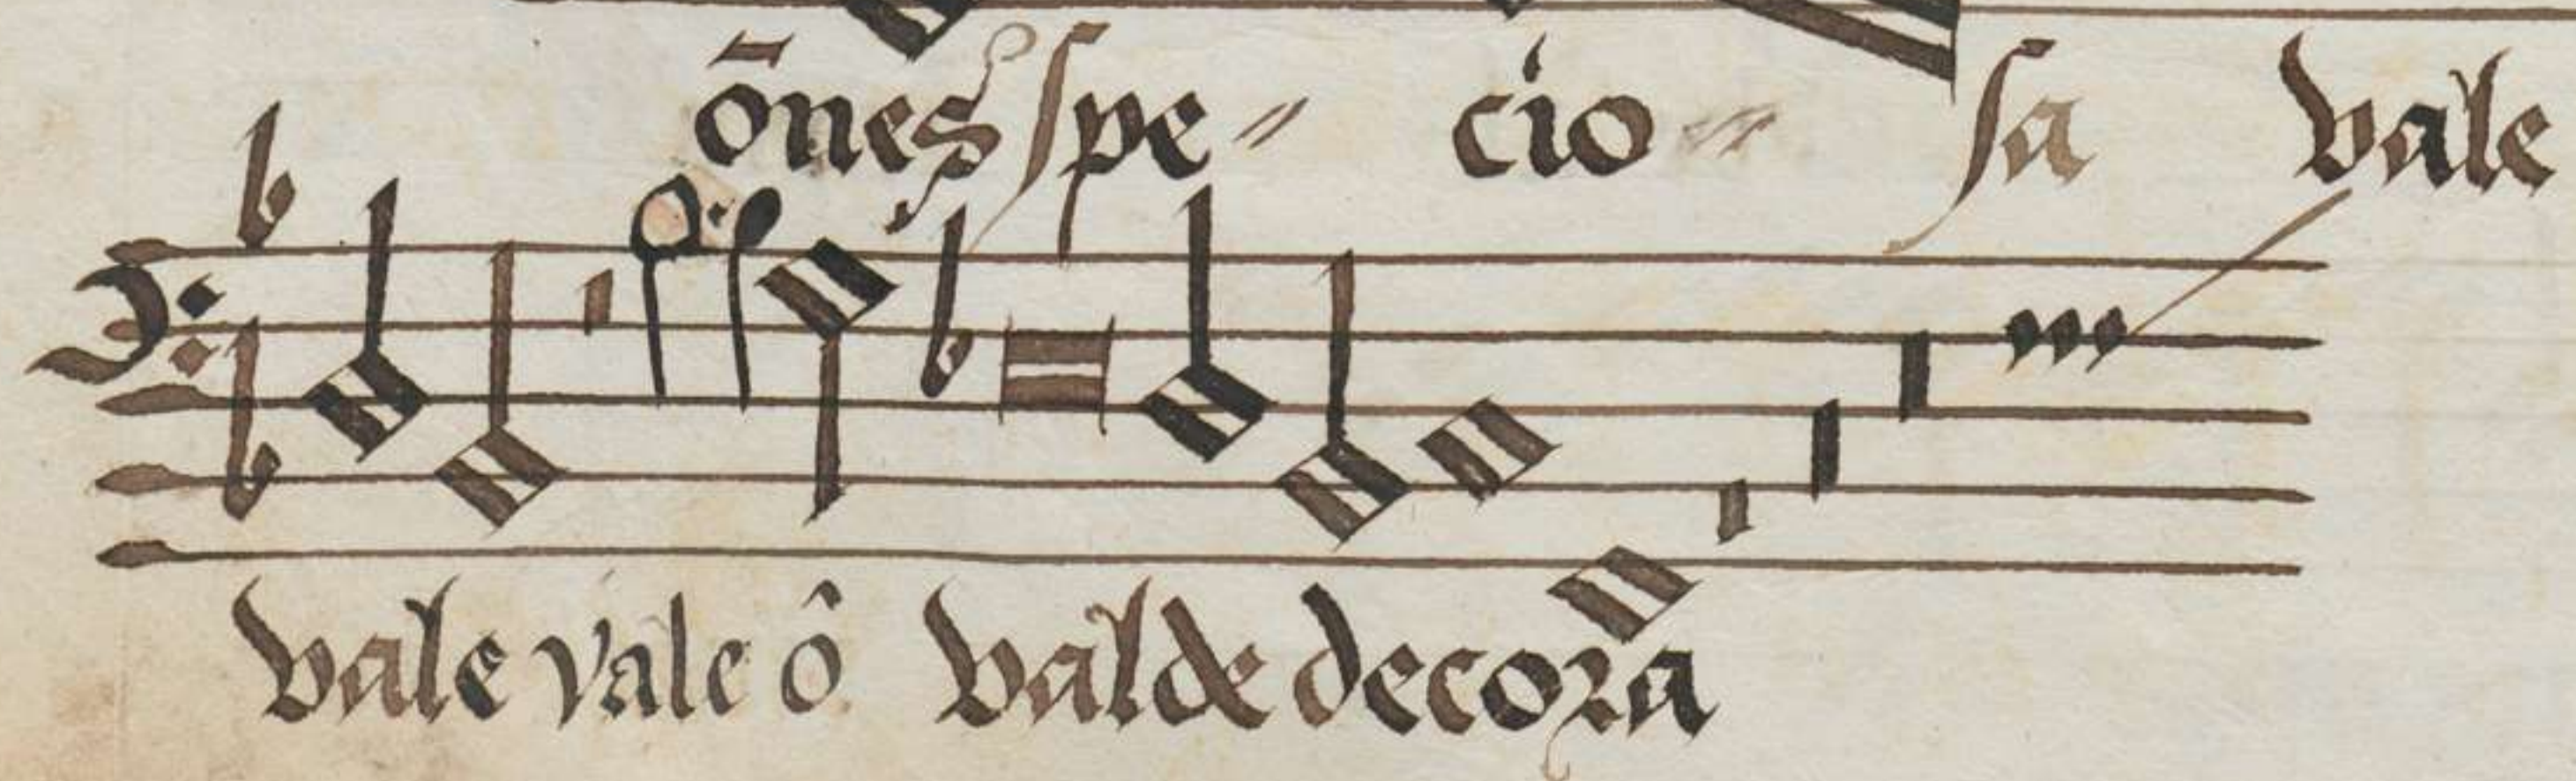 ōnes spe〃 cio〃 sa vale
vale vale ô valde decora